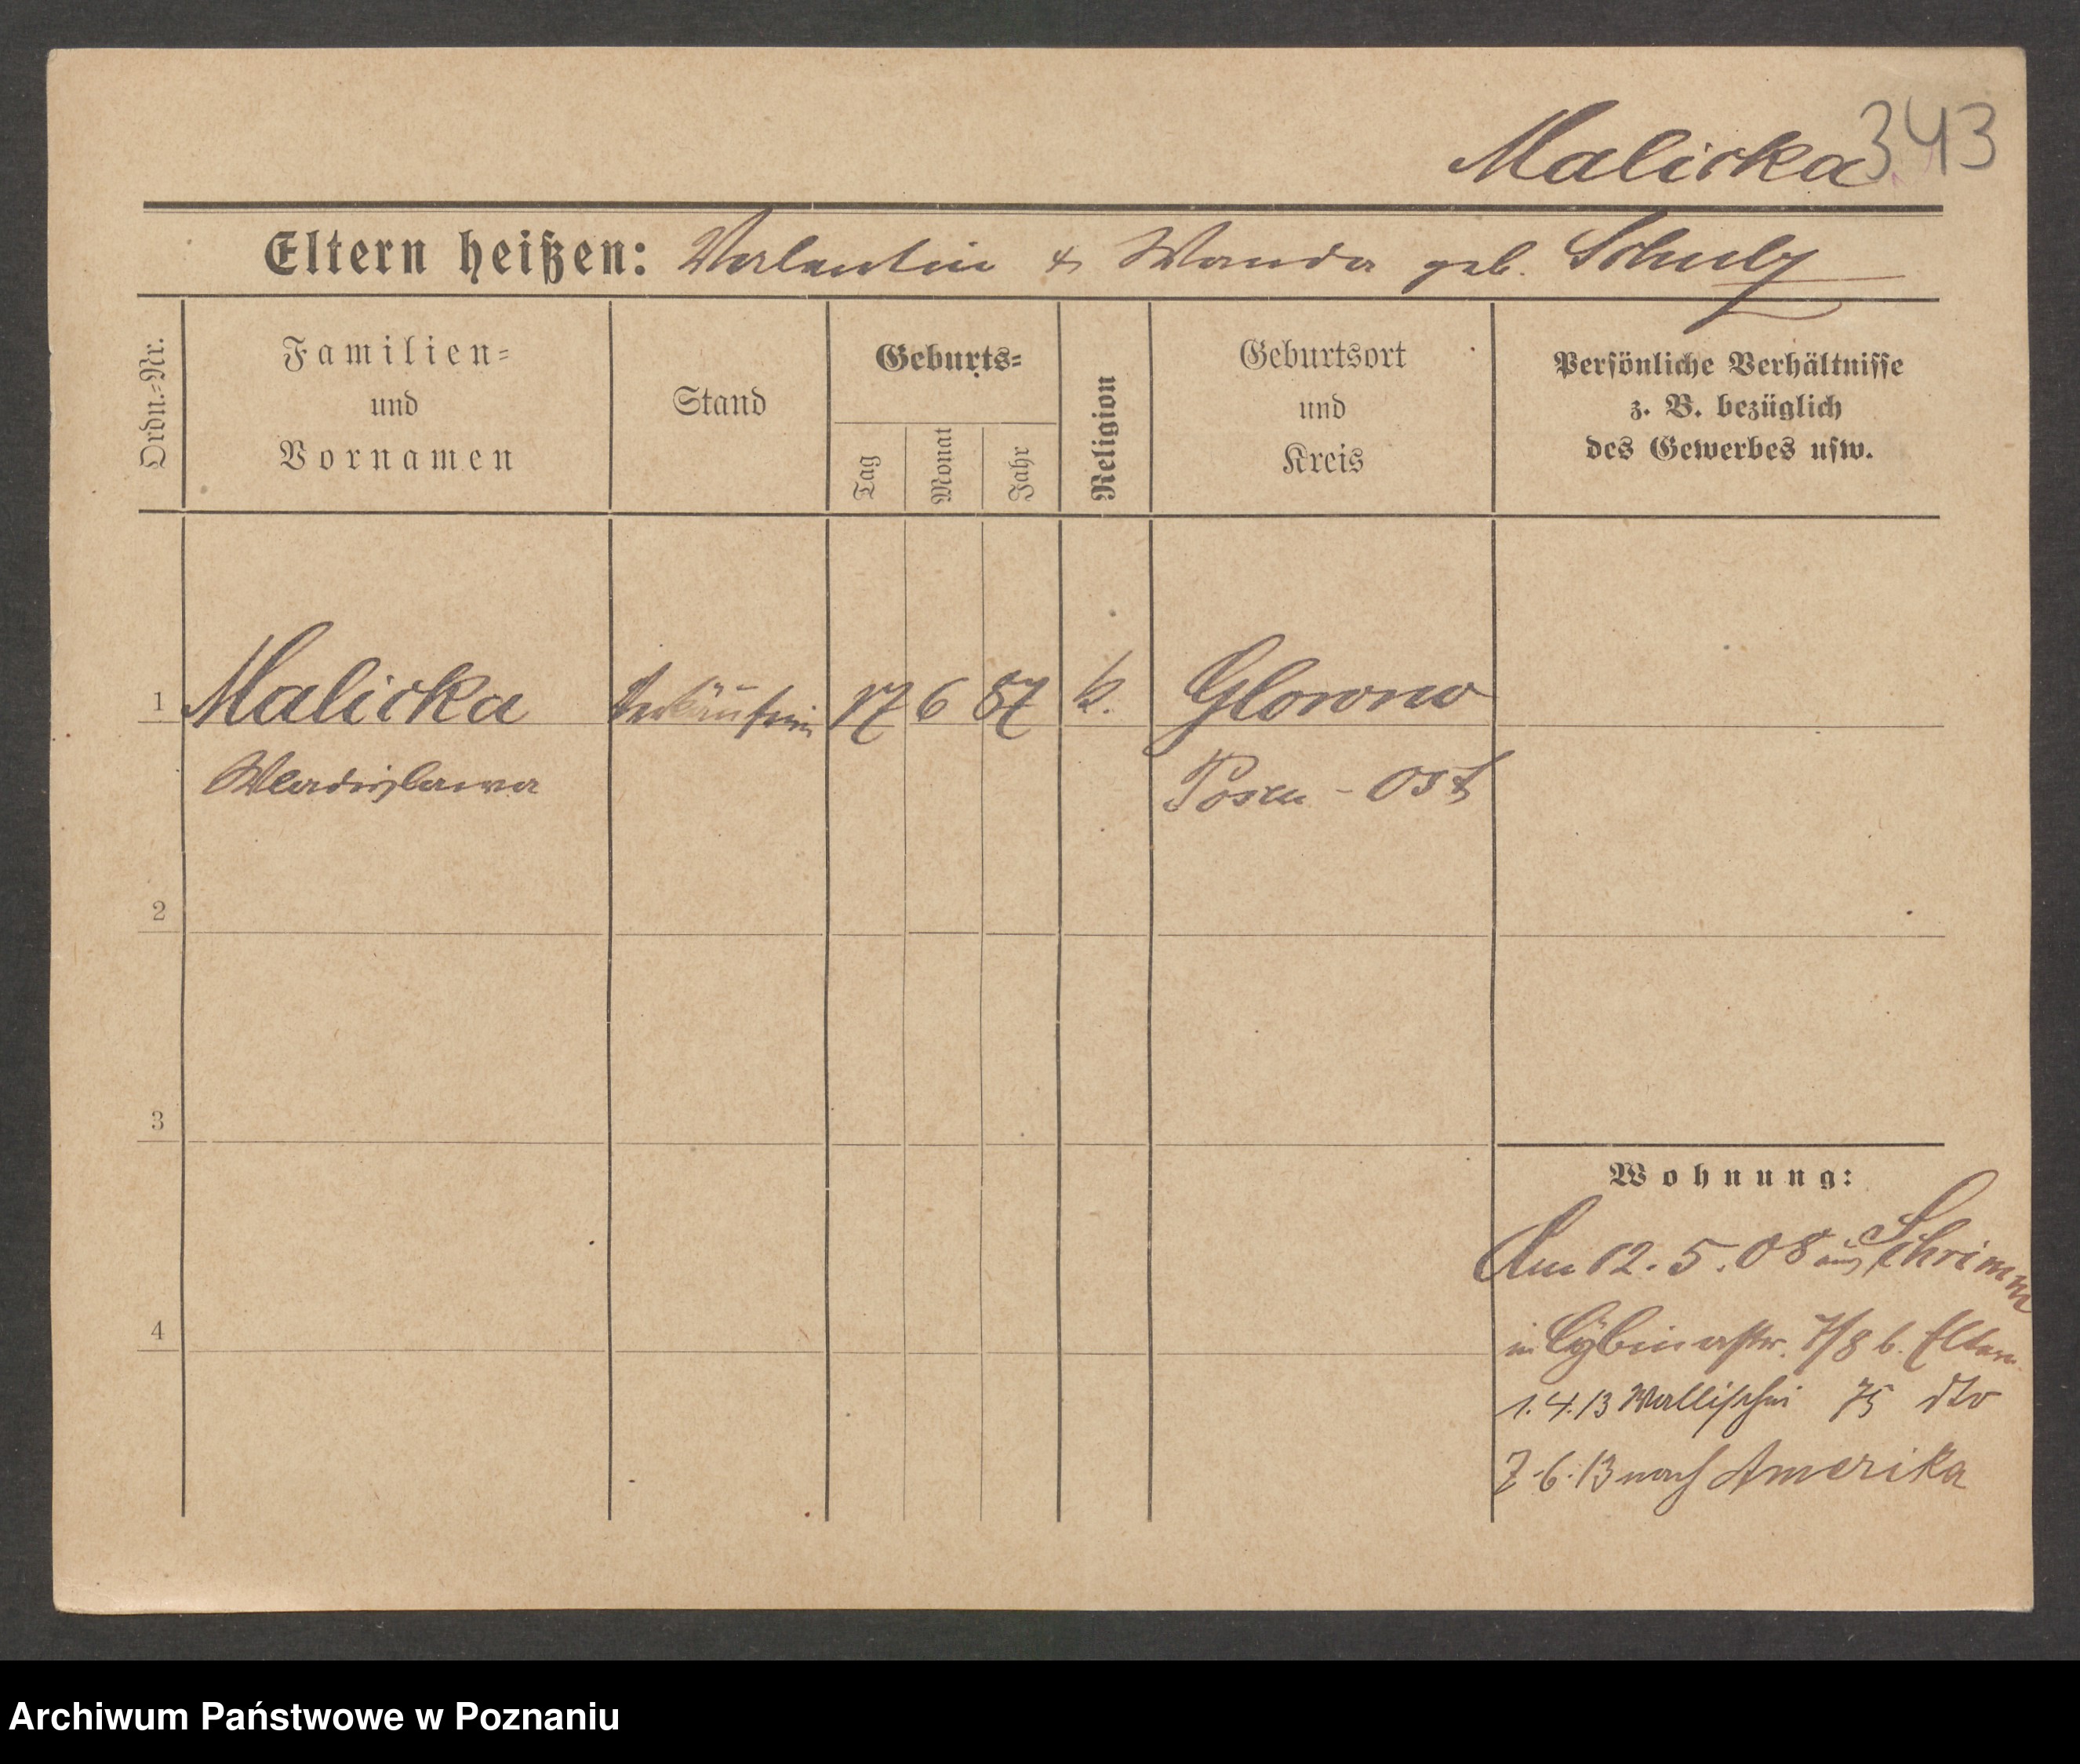 343
Malicka
Eltern heißen: Valentin & Wanda geb. Schulz
Ordn.-Nr.
Familien-
und
Vornamen
Stand
Geburts-
Tag
Monat
Jahr
Religion
Geburtsort
und
Kreis
Persönliche Verhältnisse
z. B. bezüglich
des Gewerbes usw.
1 Malicka Verkäuferin 17 6 87 k. Glowno
Wladislawa Posen-Ost
2
3
4
Wohnung:
Am 12.5.08 aus Schrimm
in Cybinastr. 7/8 b. Eltern
1.4.13 Wallischei 75 dto
7.6.13 nach Amerika
Archiwum Państwowe w Poznaniu